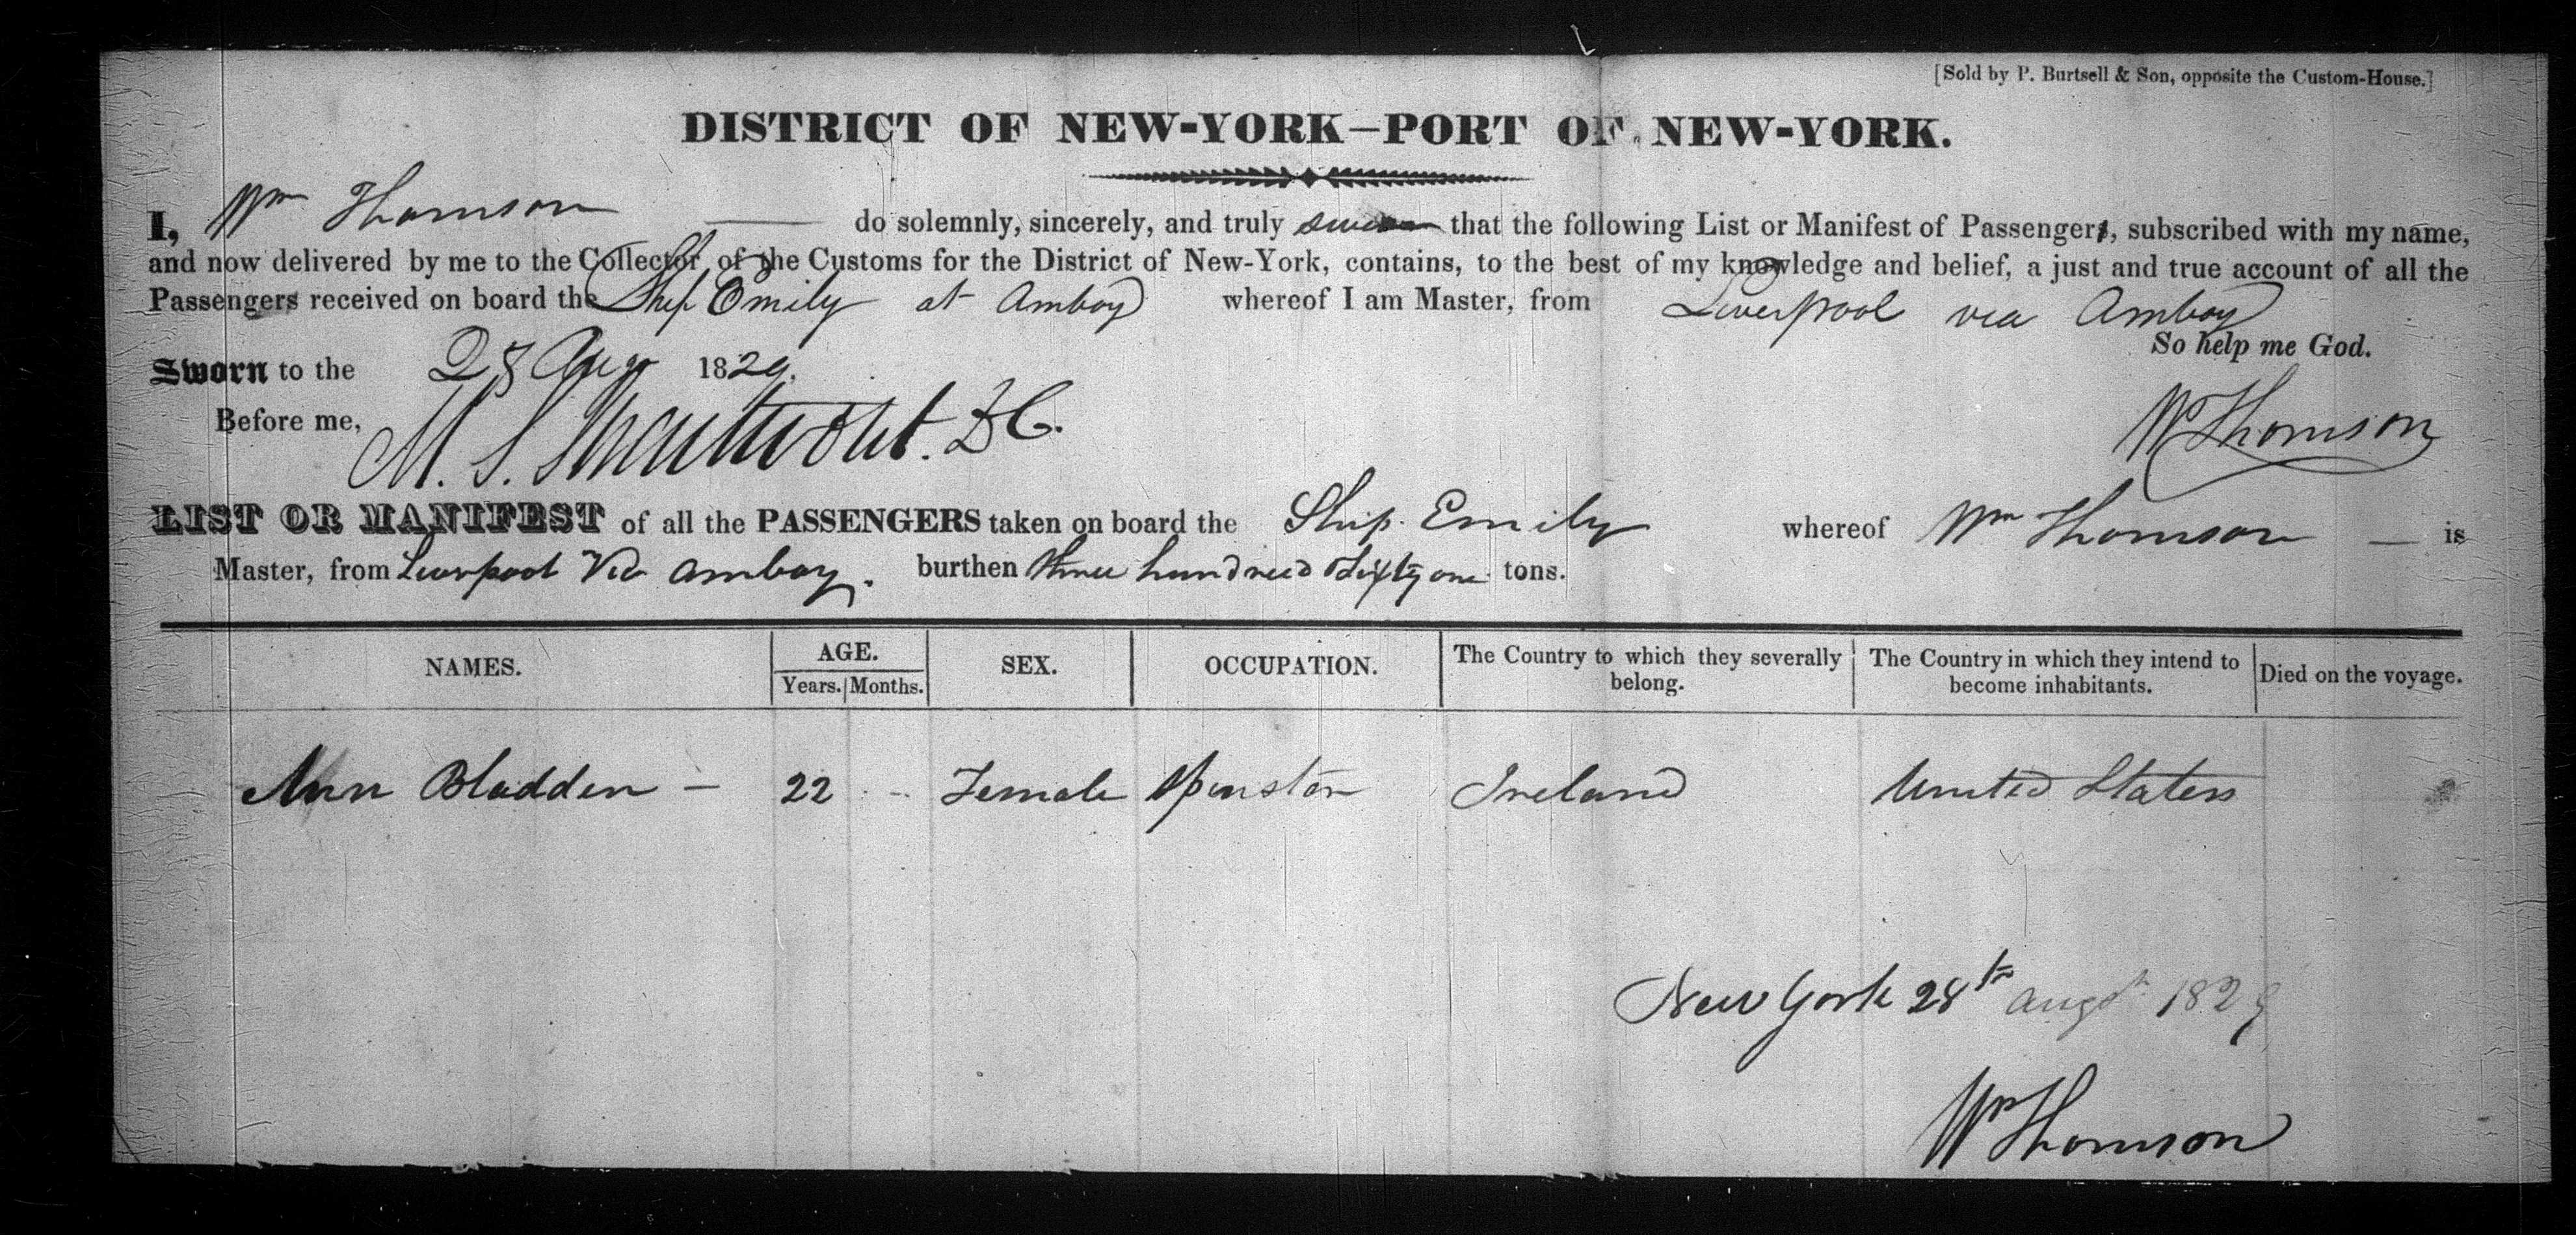 [Sold by P. Burtsell & Son, opposite the Custom-House.]
DISTRICT OF NEW-YORK—PORT OF NEW-YORK.
I, Wm Thomson do solemnly, sincerely, and truly swear that the following List or Manifest of Passengers, subscribed with my name,
and now delivered by me to the Collector of the Customs for the District of New-York, contains, to the best of my knowledge and belief, a just and true account of all the
Passengers received on board the Ship Emily at Amboy whereof I am Master, from Liverpool via Amboy
So help me God.
Sworn to the 28 Aug 1829.
Before me, M. S. Swartwout. D C.
W Thomson
LIST OR MANIFEST of all the PASSENGERS taken on board the Ship Emily whereof Wm Thomson — is
Master, from Liverpool Via Amboy. burthen three hundred Sixty one tons.
NAMES. AGE. SEX. OCCUPATION. The Country to which they severally belong. The Country in which they intend to become inhabitants. Died on the voyage.
Years. Months.
Ann Bladden — 22 - Female Spinster Ireland United States
New York 28th Augst 1829
Wm Thomson